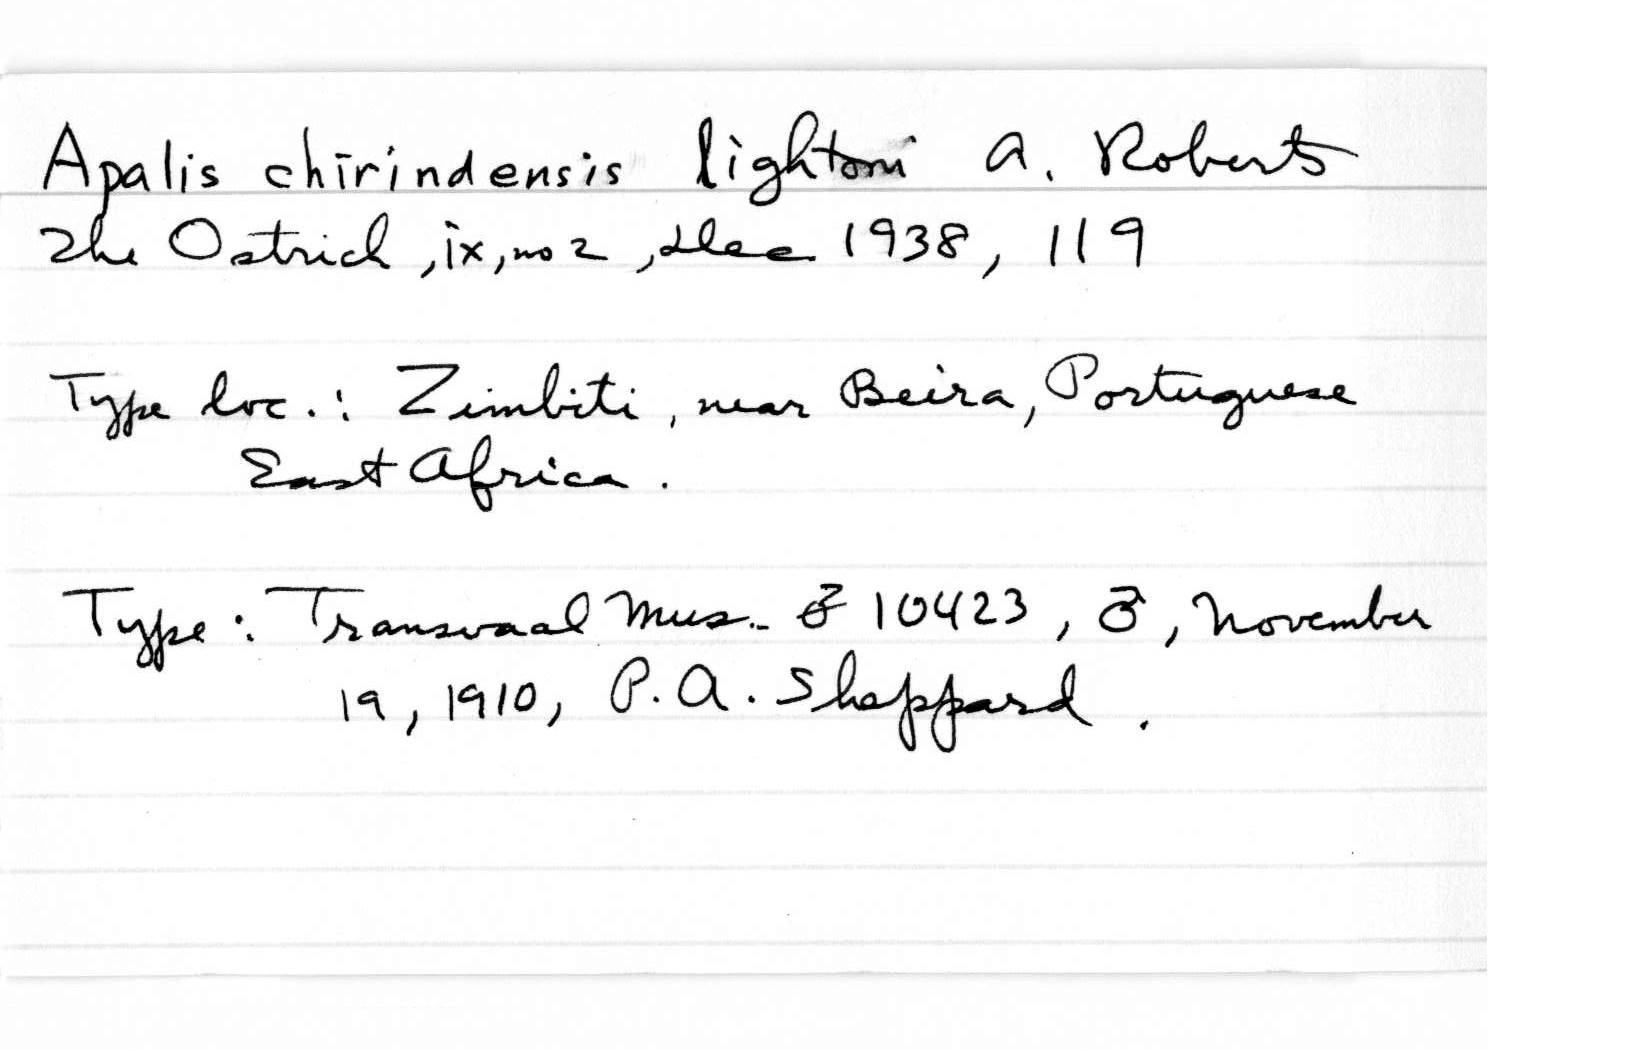 Apalis chirindensis lightoni A. Roberts
The Ostrich, ix, no 2, Dec. 1938, 119
Type loc.: Zimbiti, near Beira, Portuguese
East Africa.
Type: Transvaal Mus. ♂ 10423, ♂, November
19, 1910, P. A. Sheppard.